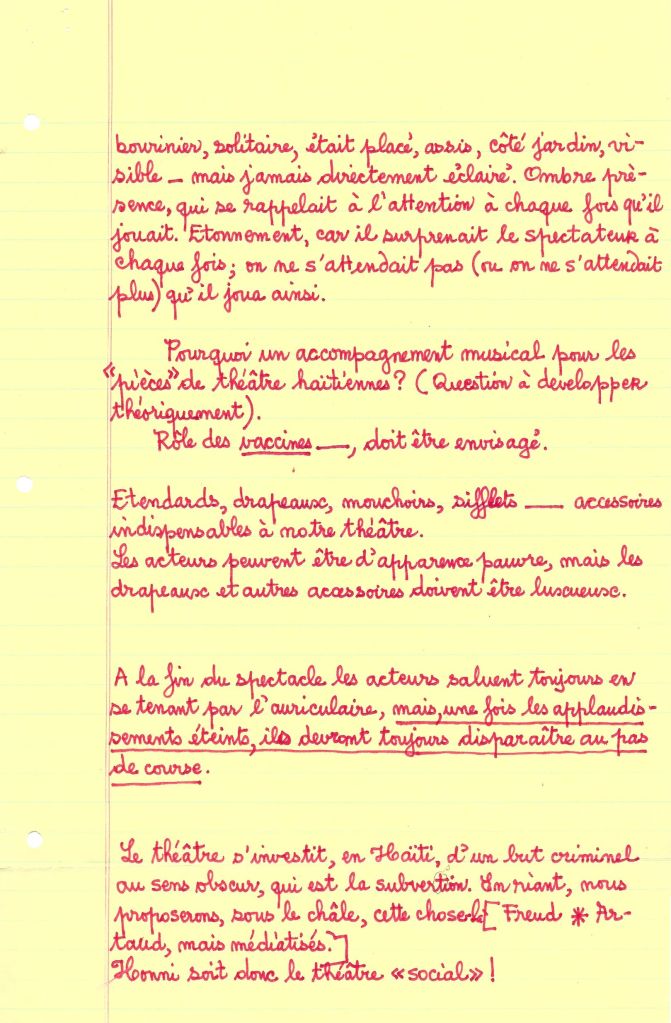 bourinier, solitaire, était placé, assis, côté jardin, vi-
sible — mais jamais directement éclairé. Ombre pré-
sence, qui se rappelait à l'attention à chaque fois qu'il
jouait. Etonnement, car il surprenait le spectateur à
chaque fois; on ne s'attendait pas (ou on ne s'attendait
plus) qu'il joua ainsi.
Pourquoi un accompagnement musical pour les
«pièces» de théâtre haïtiennes? (Question à développer
théoriquement).
Rôle des vaccines —, doit être envisagé.
Etendards, drapeaux, mouchoirs, sifflets — accessoires
indispensables à notre théâtre.
Les acteurs peuvent être d'apparence pauvre, mais les
drapeaux et autres accessoires doivent être luxueux.
A la fin du spectacle les acteurs saluent toujours en
se tenant par l'auriculaire, mais, une fois les applaudis-
sements éteints, ils devront toujours disparaître au pas
de course.
Le théâtre s'investit, en Haïti, d'un but criminel
au sens obscur, qui est la subvertion. En riant, nous
proposerons, sous le châle, cette chose-là [Freud * Ar-
taud, mais médiatisés.]
Honni soit donc le théâtre «social»!